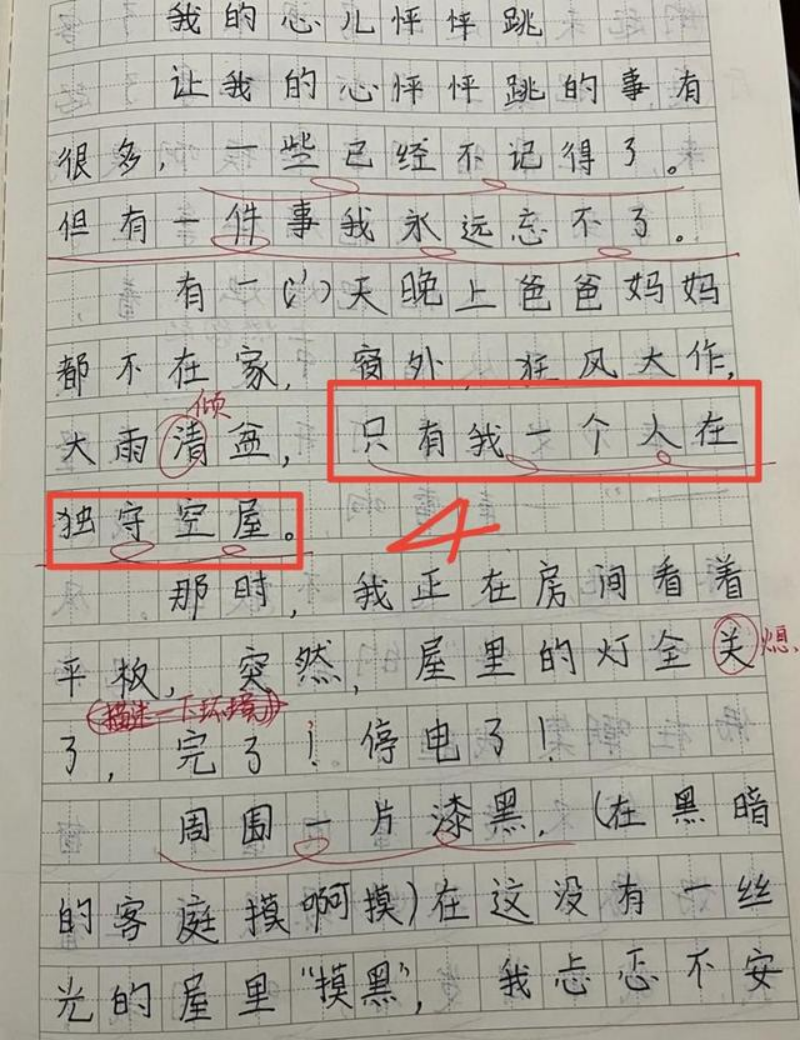 我的心儿怦怦跳
让我的心怦怦跳的事有
很多，一些已经不记得了。
但有一件事我永远忘不了。
有一(')天晚上爸爸妈妈
都不在家，窗外，狂风大作，
倾
大雨清盆，只有我一个人在
独守空屋。
4
那时，我正在房间看着
平板，突然，屋里的灯全关
熄
(描述一下环境)
了，完了！停电了！
周围一片漆黑，(在黑暗
的客庭摸啊摸)在这没有一丝
光的屋里“摸黑”，我忐忑不安